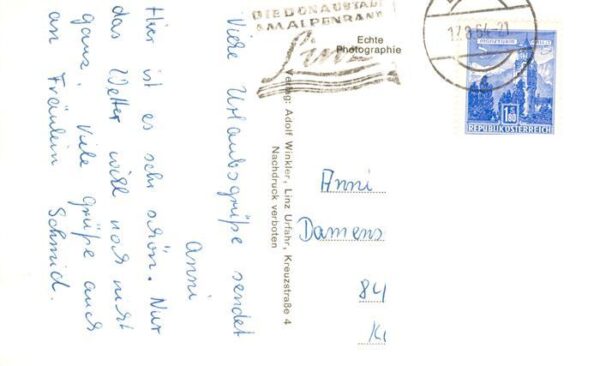 Hier ist es sehr schön. Nur
das Wetter will noch nicht
ganz. Viele Grüße auch
an Fräulein Schmid.
Viele Urlaubsgrüße sendet
Anni
Verlag: Adolf Winkler, Linz Urfahr, Kreuzstraße 4
Nachdruck verboten
Echte
Photographie
DIE DONAUSTADT
AM ALPENRAND
Linz
17.8.64-21
1.80
REPUBLIK ÖSTERREICH
Anni
Damens
84